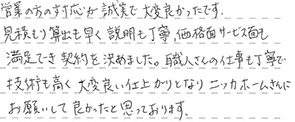 営業の方の対応が誠実で大変良かったです。
見積もり算出も早く説明も丁寧、価格面サービス面も
満足でき契約を決めました。職人さんの仕事も丁寧で
技術も高く大変良い仕上がりとなりニッカホームさんに
お願いして良かったと思っております。